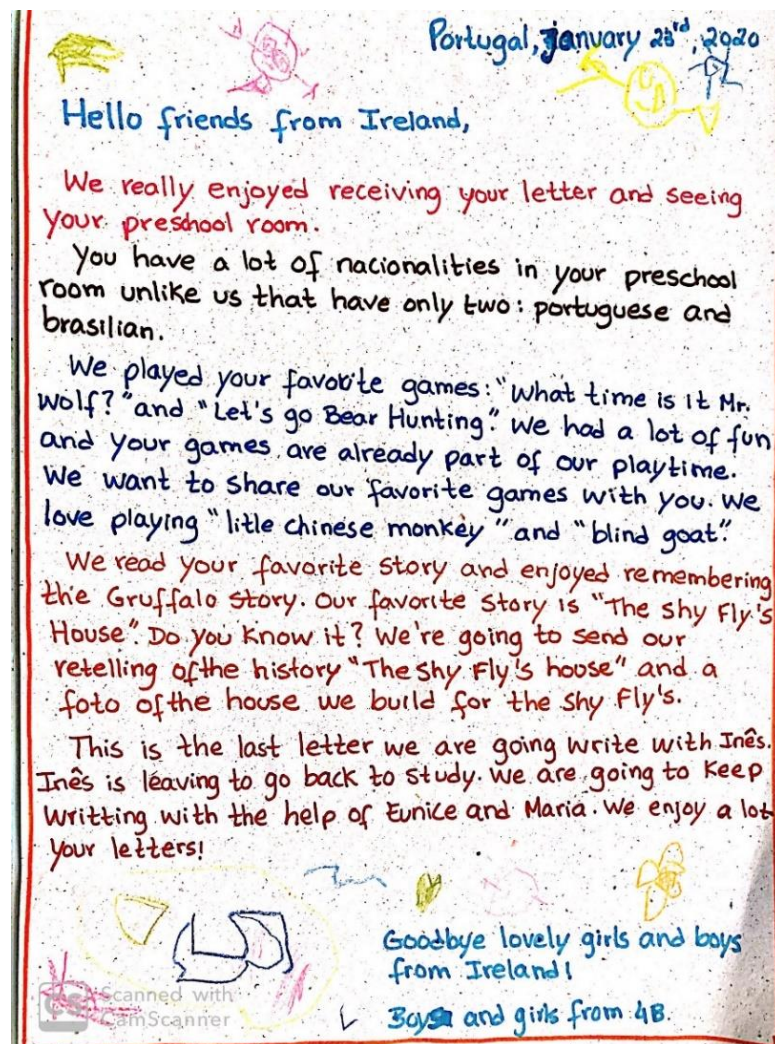 Portugal, January 23rd, 2020
Hello friends from Ireland,
We really enjoyed receiving your letter and seeing
your preschool room.
You have a lot of nacionalities in your preschool
room unlike us that have only two: portuguese and
brasilian.
We played your favorite games: "What time is it Mr.
wolf?" and "Let's go Bear Hunting". We had a lot of fun
and your games are already part of our playtime.
We want to share our favorite games with you. We
love playing "litle chinese monkey" and "blind goat".
We read your favorite story and enjoyed remembering
the Gruffalo story. Our favorite story is "The Shy Fly's
House". Do you know it? We're going to send our
retelling of the history "The shy Fly's house" and a
foto of the house we build for the shy Fly's.
This is the last letter we are going write with Inês.
Inês is leaving to go back to study. We are going to keep
writting with the help of Eunice and Maria. We enjoy a lot
your letters!
Goodbye lovely girls and boys
from Ireland!
Boys and girls from 4B.
CS Scanned with
CamScanner